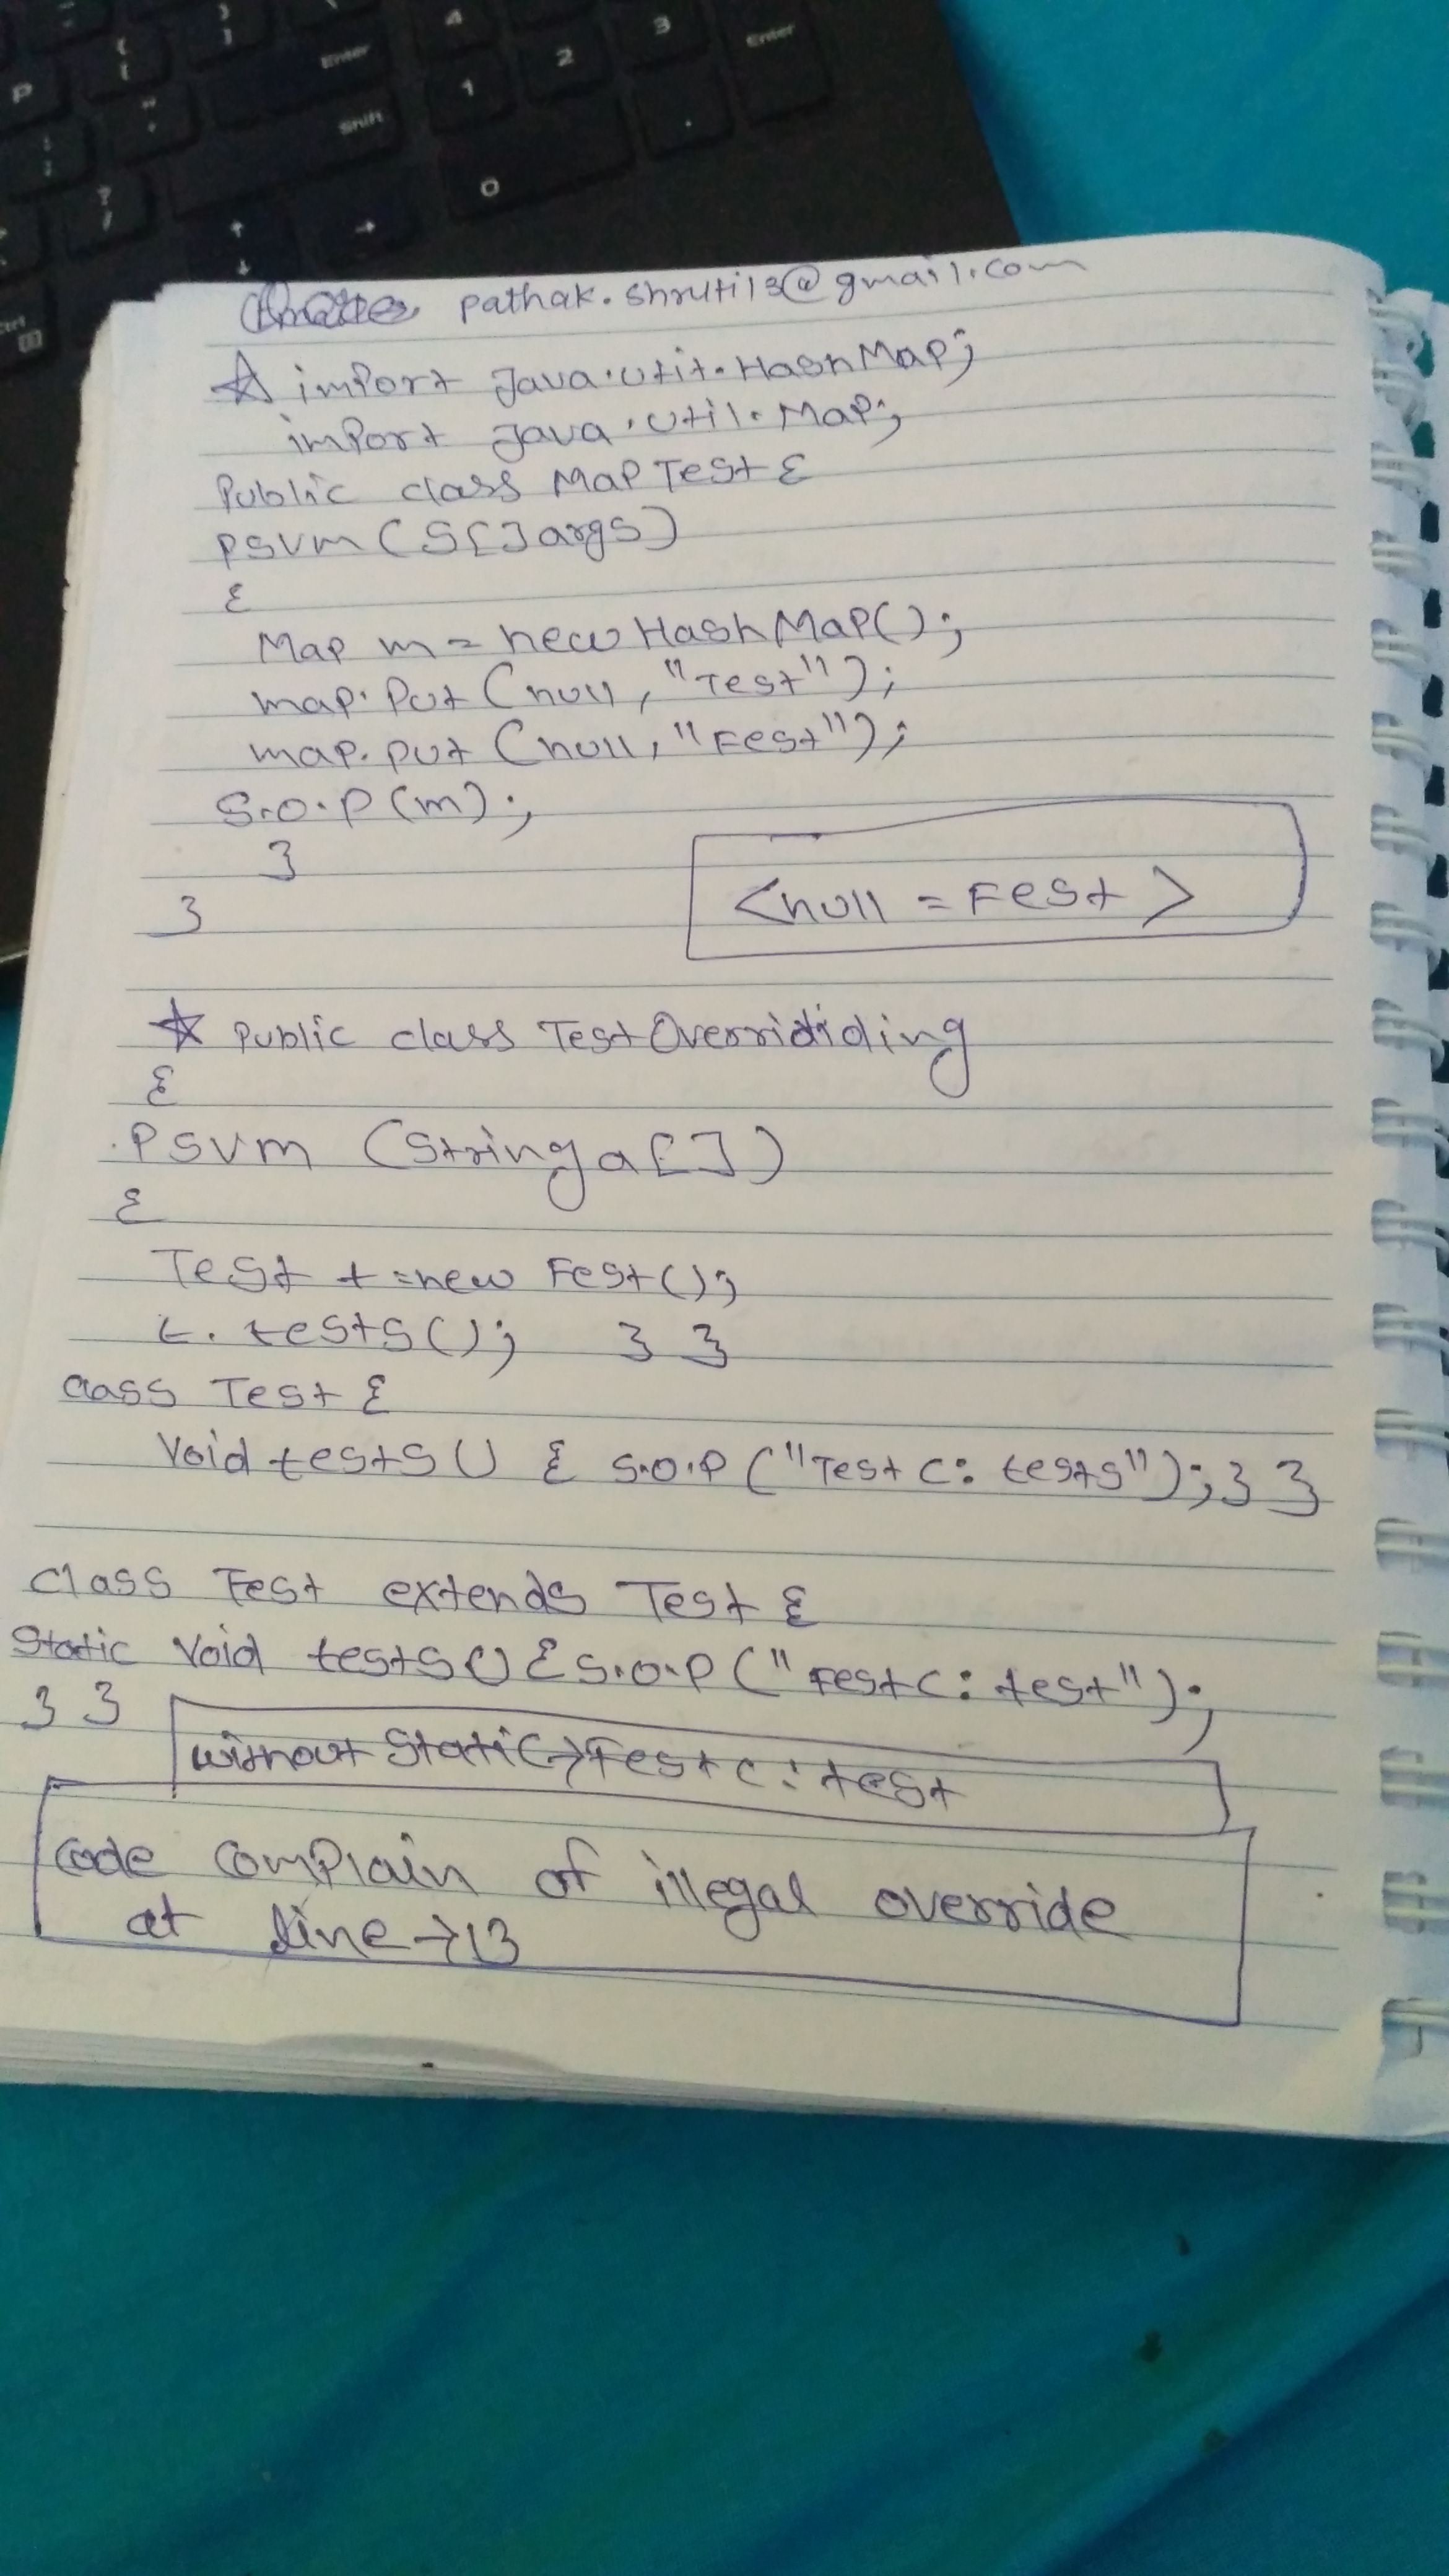 P
Enter
Shift
Ctrl
4
1
2
3
Enter
0
pathak.shruti13@gmail.com
☆ import Java.utit.HashMap;
import Java.util.Map;
Public class MapTest {
psvm (S[] args)
{
Map m = new HashMap();
map.Put (null, "Test");
map.put (null, "Fest");
S.O.P (m);
}
}
<null = Fest >
☆ Public class TestOverrididing
{
Psvm (String a[])
{
Test t = new Fest();
t. tests(); } }
class Test {
Void tests() { S.O.P ("Test C: tests"); } }
Class Fest extends Test {
Static Void tests() { S.O.P ("Fest C: test");
} }
without Static → Fest C: test
Code Complain of illegal override
at line → 13